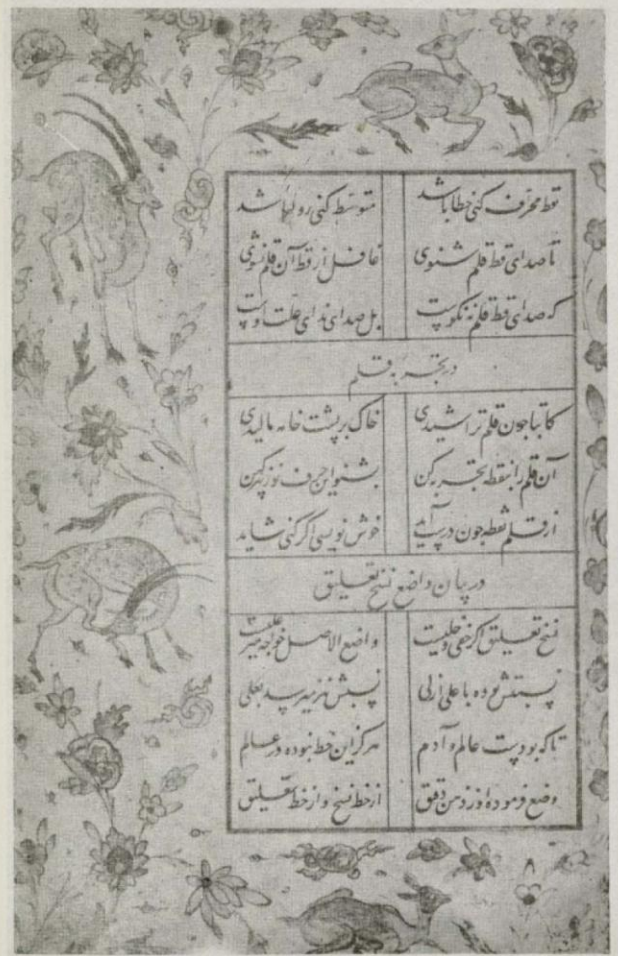 قط محرف کنی خطا باشد متوسط کنی روا باشد
تا صدای قط قلم شنوی غافل از قط آن قلم نشوی
که صدای قط قلم نیکوست بل صدای ندای علت اوست
در تجربه قلم
کاتبا چون قلم تراشیدی خاک بر پشت خامه مالیدی
آن قلم را بنقطه تجربه کن بشنو این حرف نو ز پیر کهن
از قلم نقطه چون درست آید خوش نویسی اگر کنی شاید
در بیان واضع نسخ تعلیق
نسخ تعلیق اگر خفی و جلیست واضع الاصل خواجه میر علیست
نسبتش بوده با علی ازلی نسبش نیز میرسد بعلی
تا که بودست عالم و آدم هرگز این خط نبوده در عالم
وضع فرمود او ز ذهن دقیق از خط نسخ و از خط تعلیق